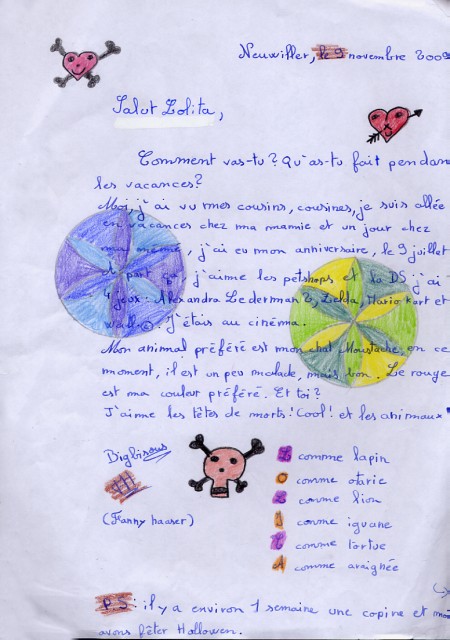 Neuwiller, le 9 novembre 2009
Salut Lolita,
Comment vas-tu? Qu'as-tu fait pendan
les vacances?
Moi, j'ai vu mes cousins, cousines, je suis allée
en vacances chez ma mamie et un jour chez
ma mémé, j'ai eu mon anniversaire, le 9 juillet
A part ça, j'aime les petshops et la DS j'ai
4 jeux: Alexandra Lederman 8, Zelda, Mario kart et
Wall.e. J'étais au cinéma.
Mon animal préféré est mon chat Moustache, en ce
moment, il est un peu malade, mais bon. Le rouge
est ma couleur préféré. Et toi?
J'aime les têtes de morts! Cool! et les animaux
Bigbisous
(Fanny haaser)
L comme lapin
O comme otarie
L comme lion
I comme iguane
T comme tortue
A comme araignée
PS: il y a environ 1 semaine une copine et moi
avons fêter Hollowen.